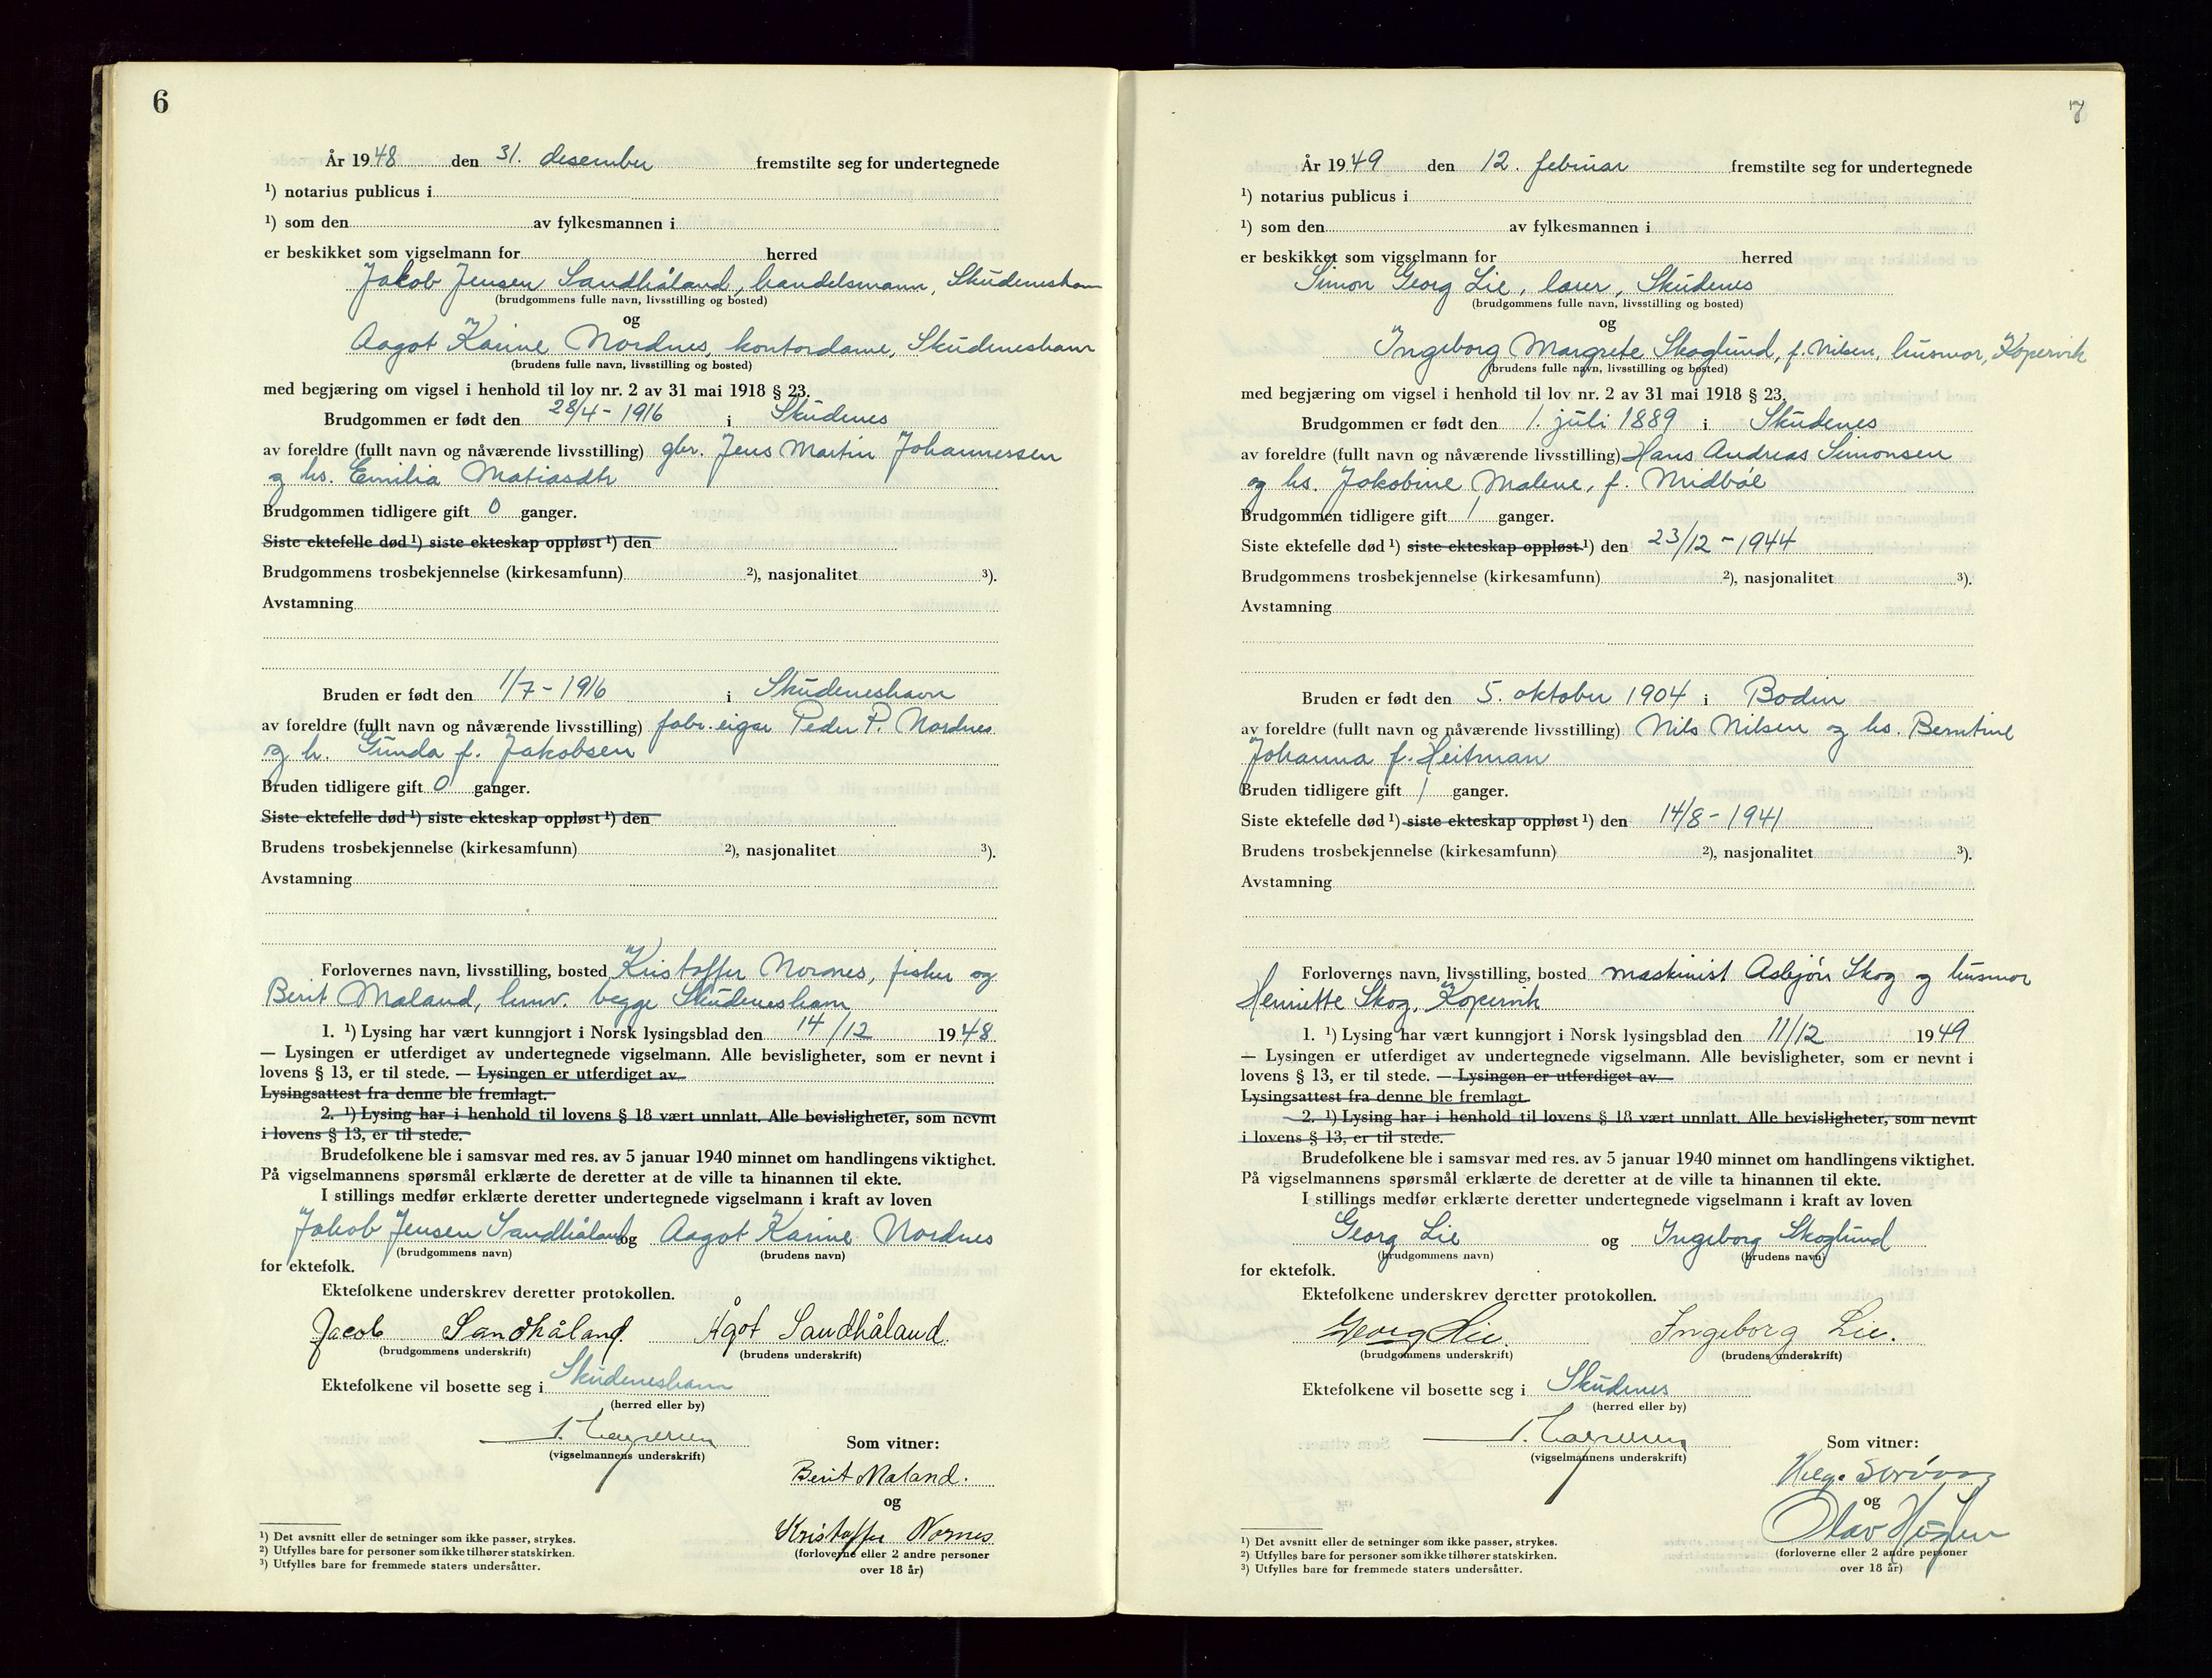 6
År 1948 den 31. desember fremstilte seg for undertegnede
¹) notarius publicus i
¹) som den av fylkesmannen i
er beskikket som vigselmann for herred
Jakob Jensen Sandhåland, handelsmann, Skudeneshavn
(brudgommens fulle navn, livsstilling og bosted)
og
Aagot Karine Nordnes, kontordame, Skudeneshavn
(brudens fulle navn, livsstilling og bosted)
med begjæring om vigsel i henhold til lov nr. 2 av 31 mai 1918 § 23.
Brudgommen er født den 28/4 - 1916 i Skudenes
av foreldre (fullt navn og nåværende livsstilling) gbr. Jens Martin Johannessen
og hs. Emilia Matiasdtr
Brudgommen tidligere gift 0 ganger.
Siste ektefelle død ¹) siste ekteskap oppløst ¹) den
Brudgommens trosbekjennelse (kirkesamfunn) ²), nasjonalitet ³).
Avstamning
Bruden er født den 1/7 - 1916 i Skudeneshavn
av foreldre (fullt navn og nåværende livsstilling) fabr. eigar Peder P. Nordnes
og h. Gunda f. Jakobsen
Bruden tidligere gift 0 ganger.
Siste ektefelle død ¹) siste ekteskap oppløst ¹) den
Brudens trosbekjennelse (kirkesamfunn) ²), nasjonalitet ³).
Avstamning
Forlovernes navn, livsstilling, bosted Kristoffer Nornes, fisker og
Berit Maland, husv. begge Skudeneshavn
1. ¹) Lysing har vært kunngjort i Norsk lysingsblad den 14/12 1948
— Lysingen er utferdiget av undertegnede vigselmann. Alle bevisligheter, som er nevnt i
lovens § 13, er til stede. — Lysingen er utferdiget av
Lysingsattest fra denne ble fremlagt.
2. ¹) Lysing har i henhold til lovens § 18 vært unnlatt. Alle bevisligheter, som nevnt
i lovens § 13, er til stede.
Brudefolkene ble i samsvar med res. av 5 januar 1940 minnet om handlingens viktighet.
På vigselmannens spørsmål erklærte de deretter at de ville ta hinannen til ekte.
I stillings medfør erklærte deretter undertegnede vigselmann i kraft av loven
Jakob Jensen Sandhåland og Aagot Karine Nordnes
(brudgommens navn) (brudens navn)
for ektefolk.
Ektefolkene underskrev deretter protokollen.
Jacob Sandhåland. Ågot Sandhåland.
(brudgommens underskrift) (brudens underskrift)
Ektefolkene vil bosette seg i Skudeneshavn
(herred eller by)
(vigselmannens underskrift)
Som vitner:
Berit Maland.
og
Kristoffer Nornes
(forloverne eller 2 andre personer
over 18 år)
¹) Det avsnitt eller de setninger som ikke passer, strykes.
²) Utfylles bare for personer som ikke tilhører statskirken.
³) Utfylles bare for fremmede staters undersåtter.
7
År 1949 den 12. februar fremstilte seg for undertegnede
¹) notarius publicus i
¹) som den av fylkesmannen i
er beskikket som vigselmann for herred
Simon Georg Lie, lærer, Skudenes
(brudgommens fulle navn, livsstilling og bosted)
og
Ingeborg Margrete Skoglund, f. Nilsen, husmor, Kopervik
(brudens fulle navn, livsstilling og bosted)
med begjæring om vigsel i henhold til lov nr. 2 av 31 mai 1918 § 23.
Brudgommen er født den 1. juli 1889 i Skudenes
av foreldre (fullt navn og nåværende livsstilling) Hans Andreas Simonsen
og hs. Jakobine Malene, f. Midbøe
Brudgommen tidligere gift 1 ganger.
Siste ektefelle død ¹) siste ekteskap oppløst ¹) den 23/12 - 1944
Brudgommens trosbekjennelse (kirkesamfunn) ²), nasjonalitet ³).
Avstamning
Bruden er født den 5. oktober 1904 i Bodin
av foreldre (fullt navn og nåværende livsstilling) Nils Nilsen og hs. Berntine
Johanna f. Heitman
Bruden tidligere gift 1 ganger.
Siste ektefelle død ¹) siste ekteskap oppløst ¹) den 14/8 - 1941
Brudens trosbekjennelse (kirkesamfunn) ²), nasjonalitet ³).
Avstamning
Forlovernes navn, livsstilling, bosted maskinist Asbjørn Skog og husmor
Henriette Skog, Kopervik
1. ¹) Lysing har vært kunngjort i Norsk lysingsblad den 11/12 1949
— Lysingen er utferdiget av undertegnede vigselmann. Alle bevisligheter, som er nevnt i
lovens § 13, er til stede. — Lysingen er utferdiget av
Lysingsattest fra denne ble fremlagt.
2. ¹) Lysing har i henhold til lovens § 18 vært unnlatt. Alle bevisligheter, som nevnt
i lovens § 13, er til stede.
Brudefolkene ble i samsvar med res. av 5 januar 1940 minnet om handlingens viktighet.
På vigselmannens spørsmål erklærte de deretter at de ville ta hinannen til ekte.
I stillings medfør erklærte deretter undertegnede vigselmann i kraft av loven
Georg Lie og Ingeborg Skoglund
(brudgommens navn) (brudens navn)
for ektefolk.
Ektefolkene underskrev deretter protokollen.
Georg Lie Ingeborg Lie.
(brudgommens underskrift) (brudens underskrift)
Ektefolkene vil bosette seg i Skudenes
(herred eller by)
(vigselmannens underskrift)
Som vitner:
og
Olav
(forloverne eller 2 andre personer
over 18 år)
¹) Det avsnitt eller de setninger som ikke passer, strykes.
²) Utfylles bare for personer som ikke tilhører statskirken.
³) Utfylles bare for fremmede staters undersåtter.